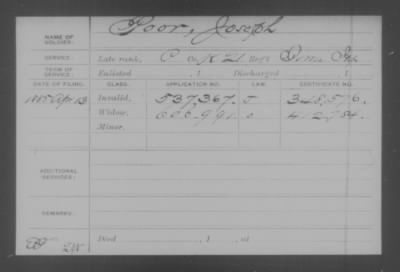 NAME OF SOLDIER: Poor, Joseph
SERVICE: Late rank, Co. K 21 Reg't
TERM OF SERVICE: Enlisted , 1 Discharged , 1
DATE OF FILING. CLASS. APPLICATION NO. LAW. CERTIFICATE NO.
1885 Apr 13 Invalid, 537,367. 328,576.
Widow, 412,784.
Minor,
ADDITIONAL SERVICES:
REMARKS:
Died , 1 , at